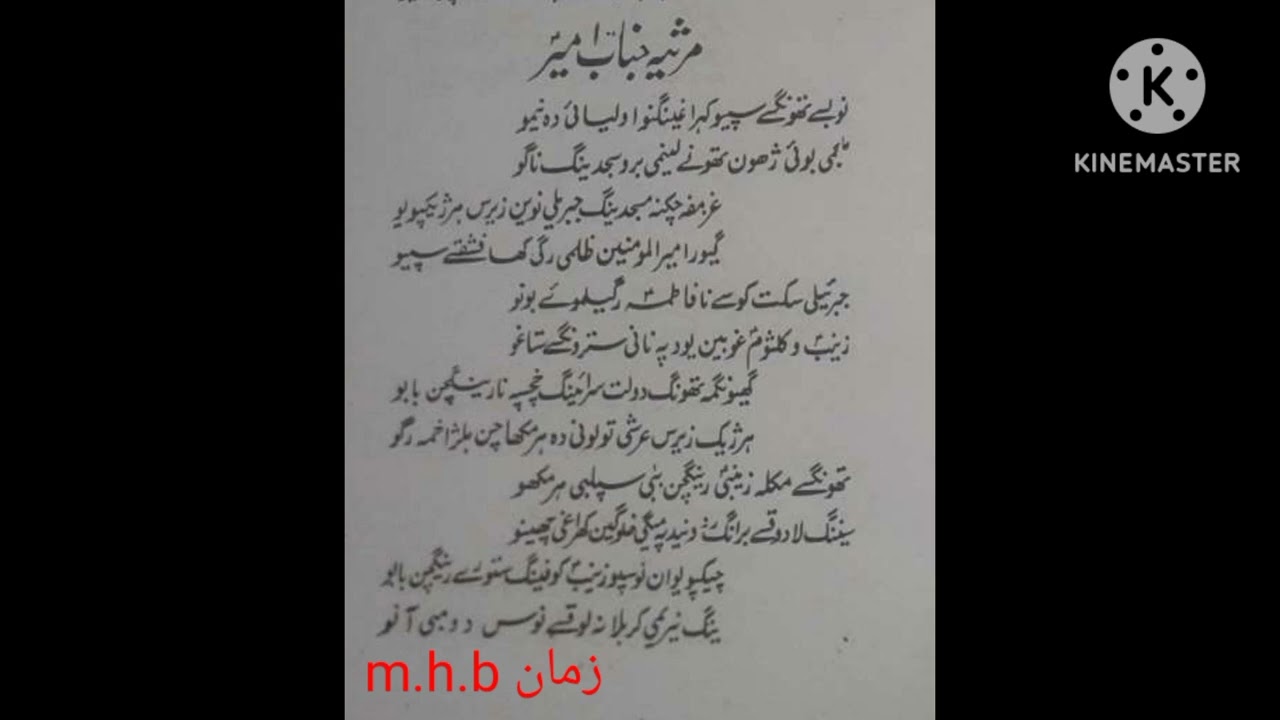 مرثیہ جناب امیرؑ
نوبسے تھونگسے سپیو کہراغینگنو اولیائی دہ نیمو
ہجی بوئی ژھون تھونے لینمی بروسجدینگ ناگو
غرمفہ چکنہ مسجدینگ جبریلی نوین زیرس ہرژیکپولو
گیور امیرالمومنین ظلمی رگی کھا فشقسے سپیو
جبرئیلی سکت کوسے نا فاطمہؑ رگیلموے بونو
زینبؑ و کلثومؑ غوبین یود پہ نانی سترونگسے ستاغو
گھیونگمہ تھونگ دولت سرائینگ خچسپہ نا رینگچن بابو
ہرژیک زیرس عرشی تولونی دہ ہرمکھاچن بلژا خمہ رگو
تھونگسے مکلہ زینبیؑ رینگچن بنی سپلبی ہرمکھو
سیننگ لادوقسے برانگ دنید پہ میگی فلوگین کھراغی چھینو
چیکپولوان نوسپو زینبؑ کوفینگ ستورسے رینگچن بابو
ینگ نیرمی کربلا نہ لوقسے نوس دومبی آنو
m.h.b زمان
KINEMASTER